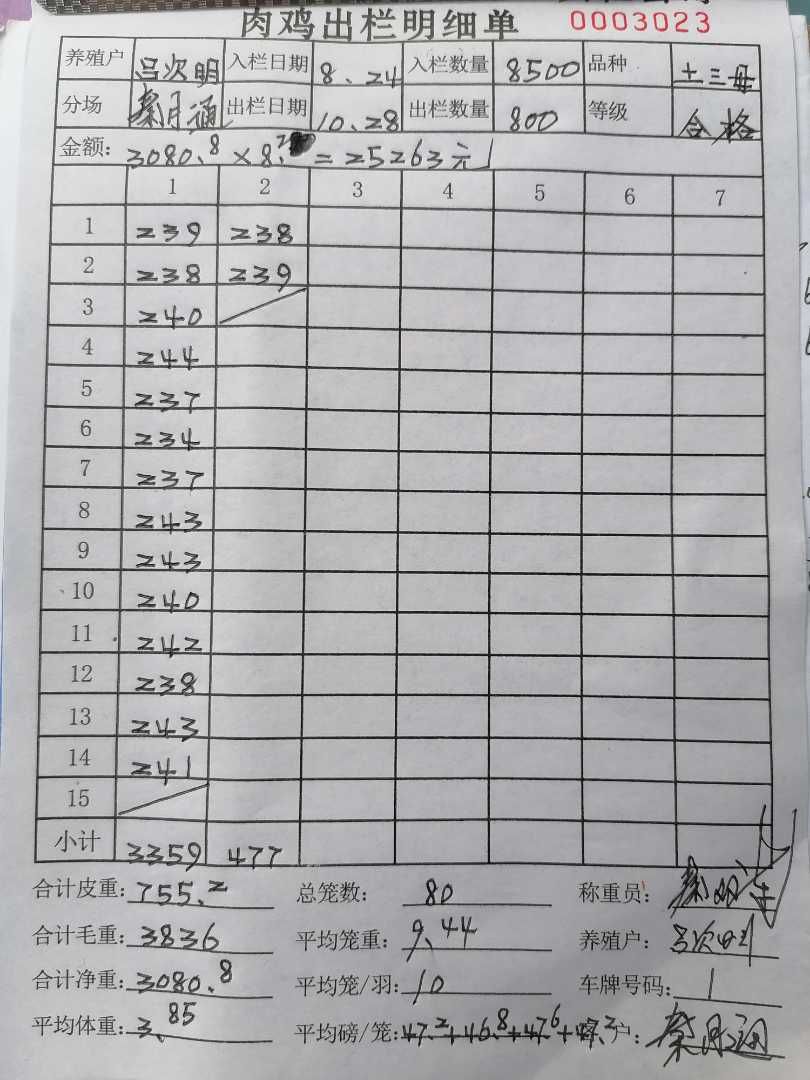 肉鸡出栏明细单 0003023
养殖户 吕次明 入栏日期 8.24 入栏数量 8500 品种 土三母
分场 秦月通 出栏日期 10.28 出栏数量 800 等级 合格
金额: 3080.8 × 8.2 = 25263元
1 2 3 4 5 6 7
1 239 238
2 238 239
3 240
4 244
5 237
6 234
7 237
8 243
9 243
10 240
11 242
12 238
13 243
14 241
15
小计 3359 477
合计皮重: 755.2 总笼数: 80 称重员:
合计毛重: 3836 平均笼重: 9.44 养殖户: 吕次明
合计净重: 3080.8 平均笼/羽: 10 车牌号码: 1
平均体重: 3.85 平均磅/笼: 47.2+46.8+47.6+47.2 户: